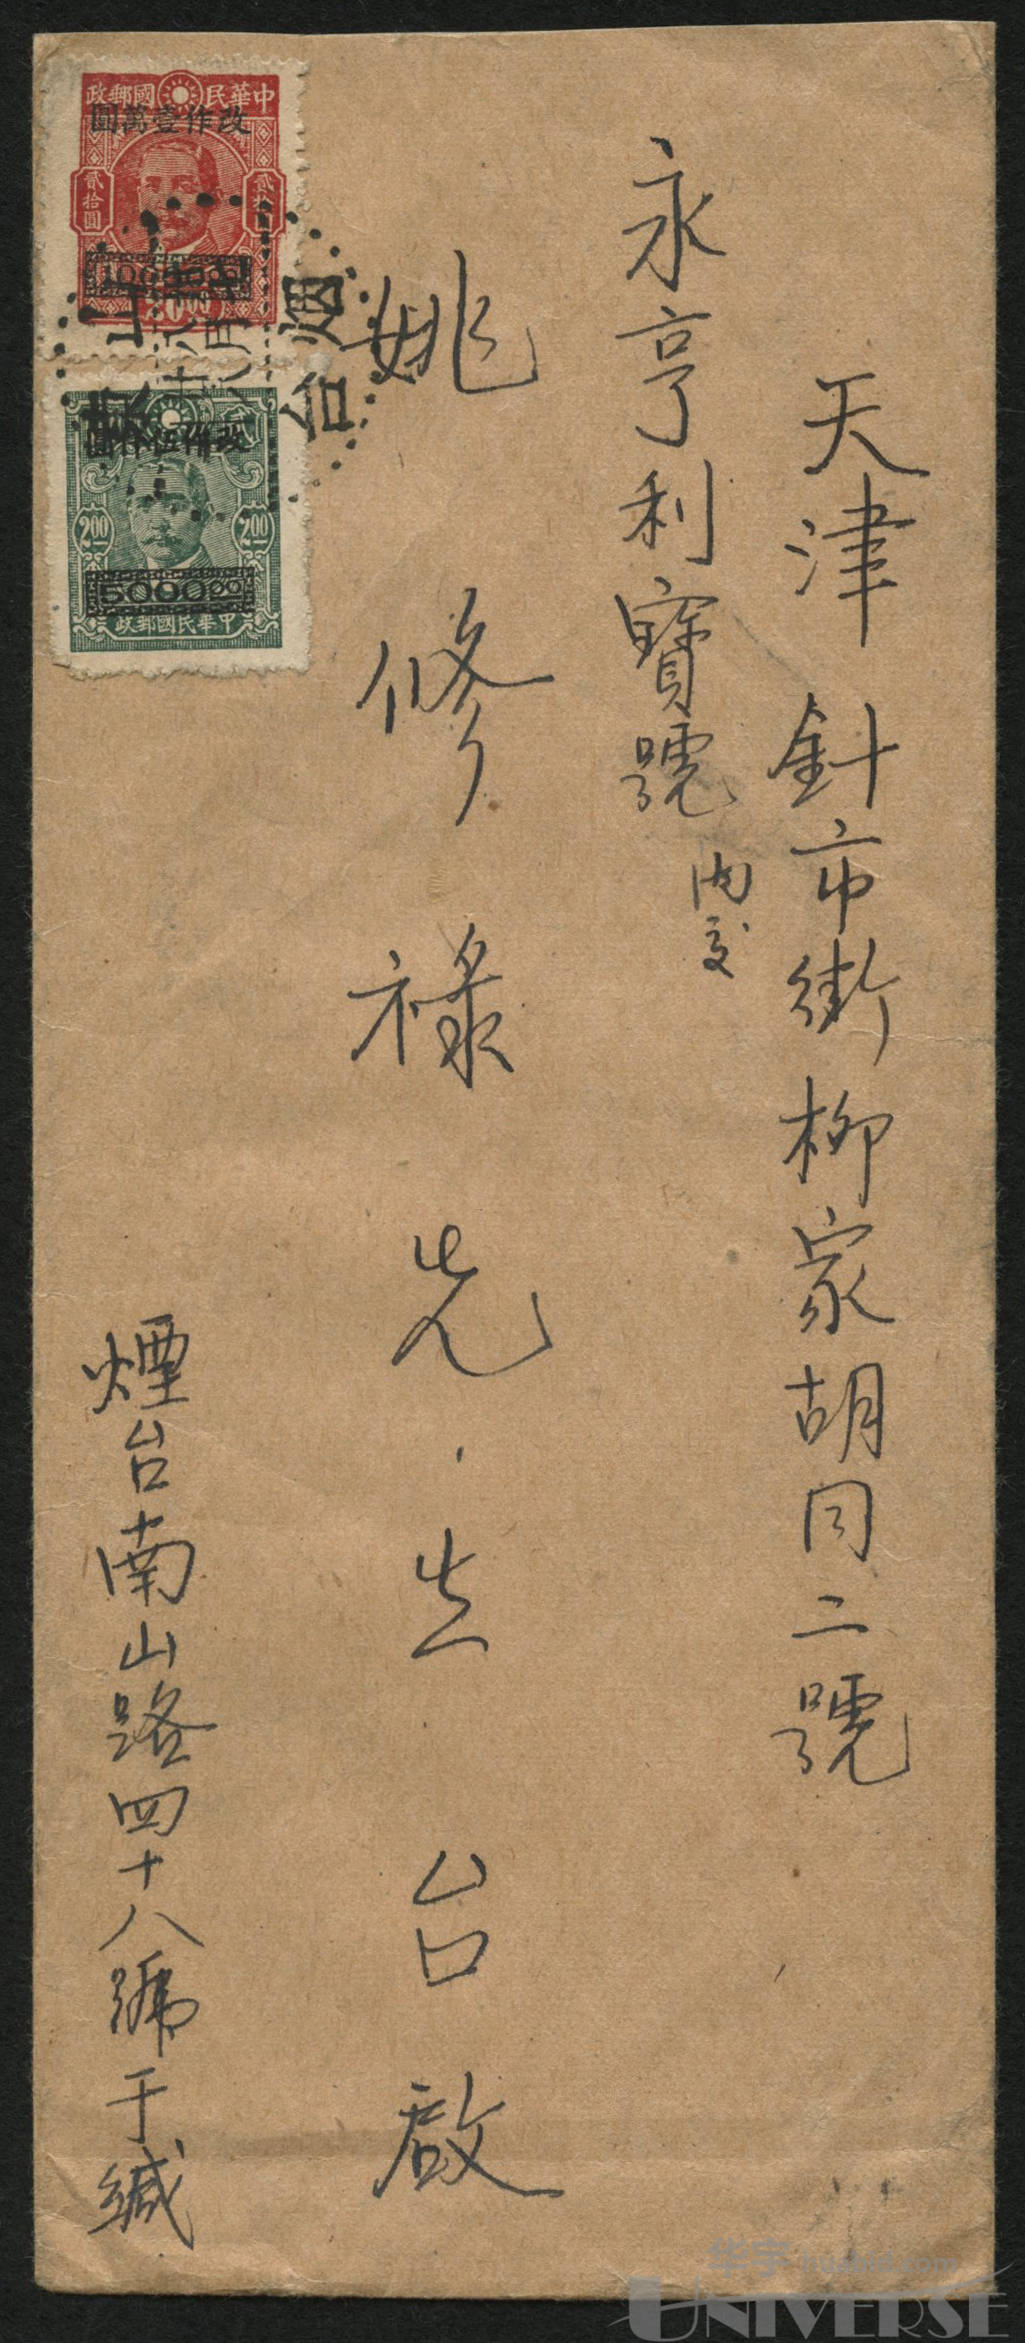 天津針市街柳家胡同二號
永亨利寶號
內交
姚修祿先生台啟
煙台南山路四十八號于緘
政郵國民華中
圓萬壹作改
貳拾圓
貳拾
20.00
煙台
2.00
2.00
5000.00
政郵國民華中
华宇 huabid.com
UNIVERSE